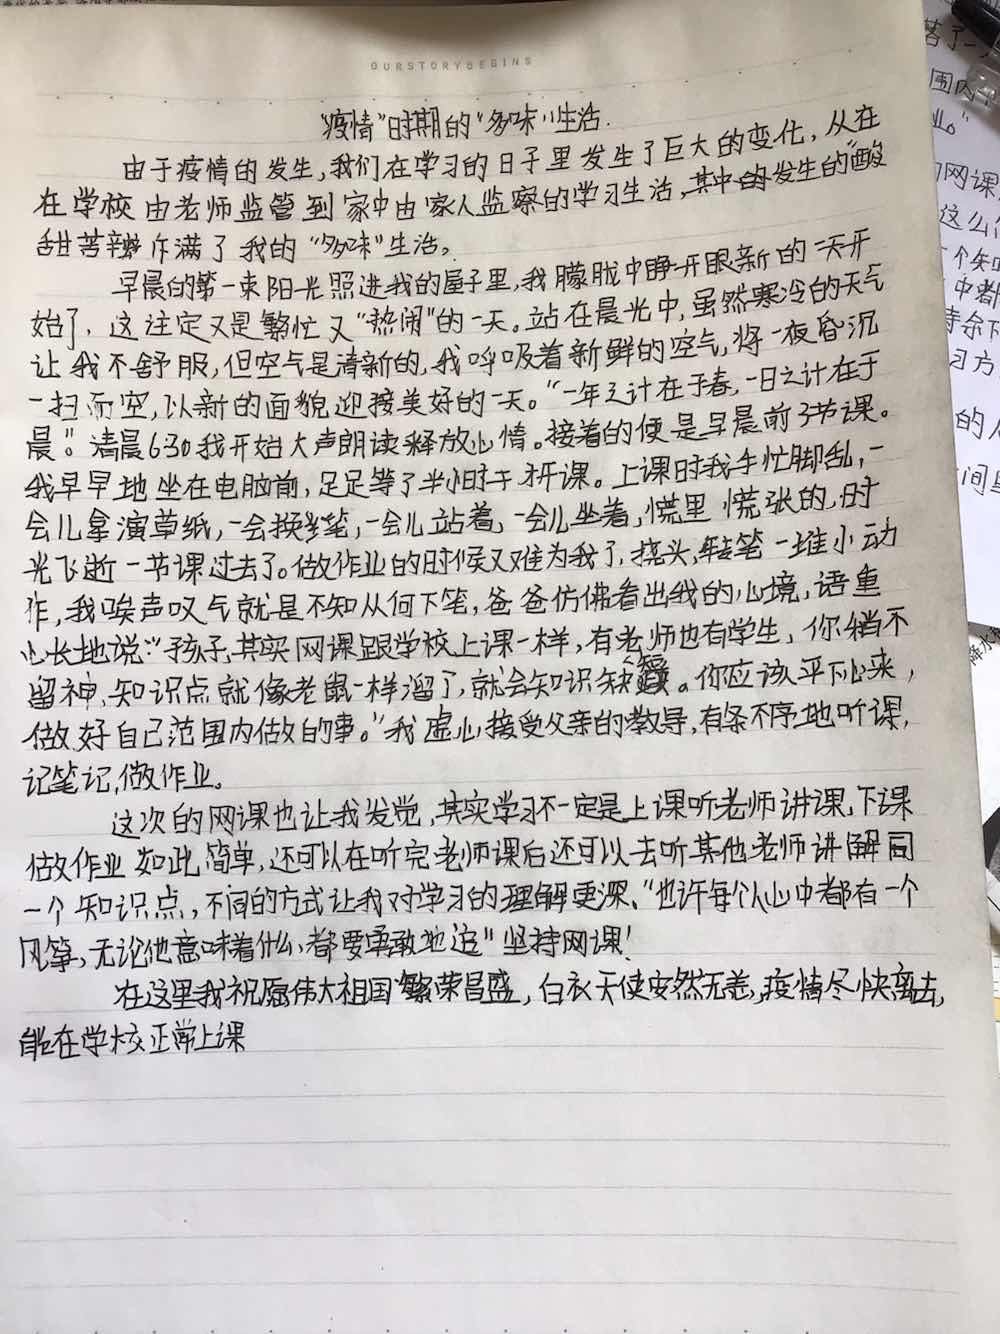 OURSTORYBEGINS
"疫情"时期的"多味"生活.
由于疫情的发生,我们在学习的日子里发生了巨大的变化,从在
在学校由老师监管到家中由家人监察的学习生活,其中的发生的"酸
甜苦辣"炸满了我的"多味"生活。
早晨的第一束阳光照进我的屋子里,我朦胧中睁开眼新的一天开
始了,这注定又是繁忙又"热闹"的一天。站在晨光中,虽然寒冷的天气
让我不舒服,但空气是清新的,我呼吸着新鲜的空气,将一夜昏沉
一扫而空,以新的面貌迎接美好的一天。"一年之计在于春,一日之计在于
晨"。清晨6:30我开始大声朗读释放心情。接着的便是早晨前3节课。
我早早地坐在电脑前,足足等了半小时于开课。上课时我手忙脚乱,一
会儿拿演草纸,一会换笔,一会儿站着,一会儿坐着,慌里慌张的,时
光飞逝一节课过去了。做作业的时候又难为我了,挠头,转笔一堆小动
作,我唉声叹气就是不知从何下笔,爸爸仿佛看出我的心境,语重
心长地说:"孩子,其实网课跟学校上课一样,有老师也有学生,你稍不
留神,知识点就像老鼠一样溜了,就会知识缺。你应该平下心来,
做好自己范围内做的事。"我虚心接受父亲的教导,有条不序地听课,
记笔记,做作业。
这次的网课也让我发觉,其实学习不一定是上课听老师讲课,下课
做作业如此简单,还可以在听完老师课后还可以去听其他老师讲解同
一个知识点,不同的方式让我对学习的理解更深、"也许每个人心中都有一个
风筝,无论他意味着什么,都要勇敢地追"坚持网课!
在这里我祝愿伟大祖国繁荣昌盛,白衣天使安然无恙,疫情尽快离去,
能在学校正常上课